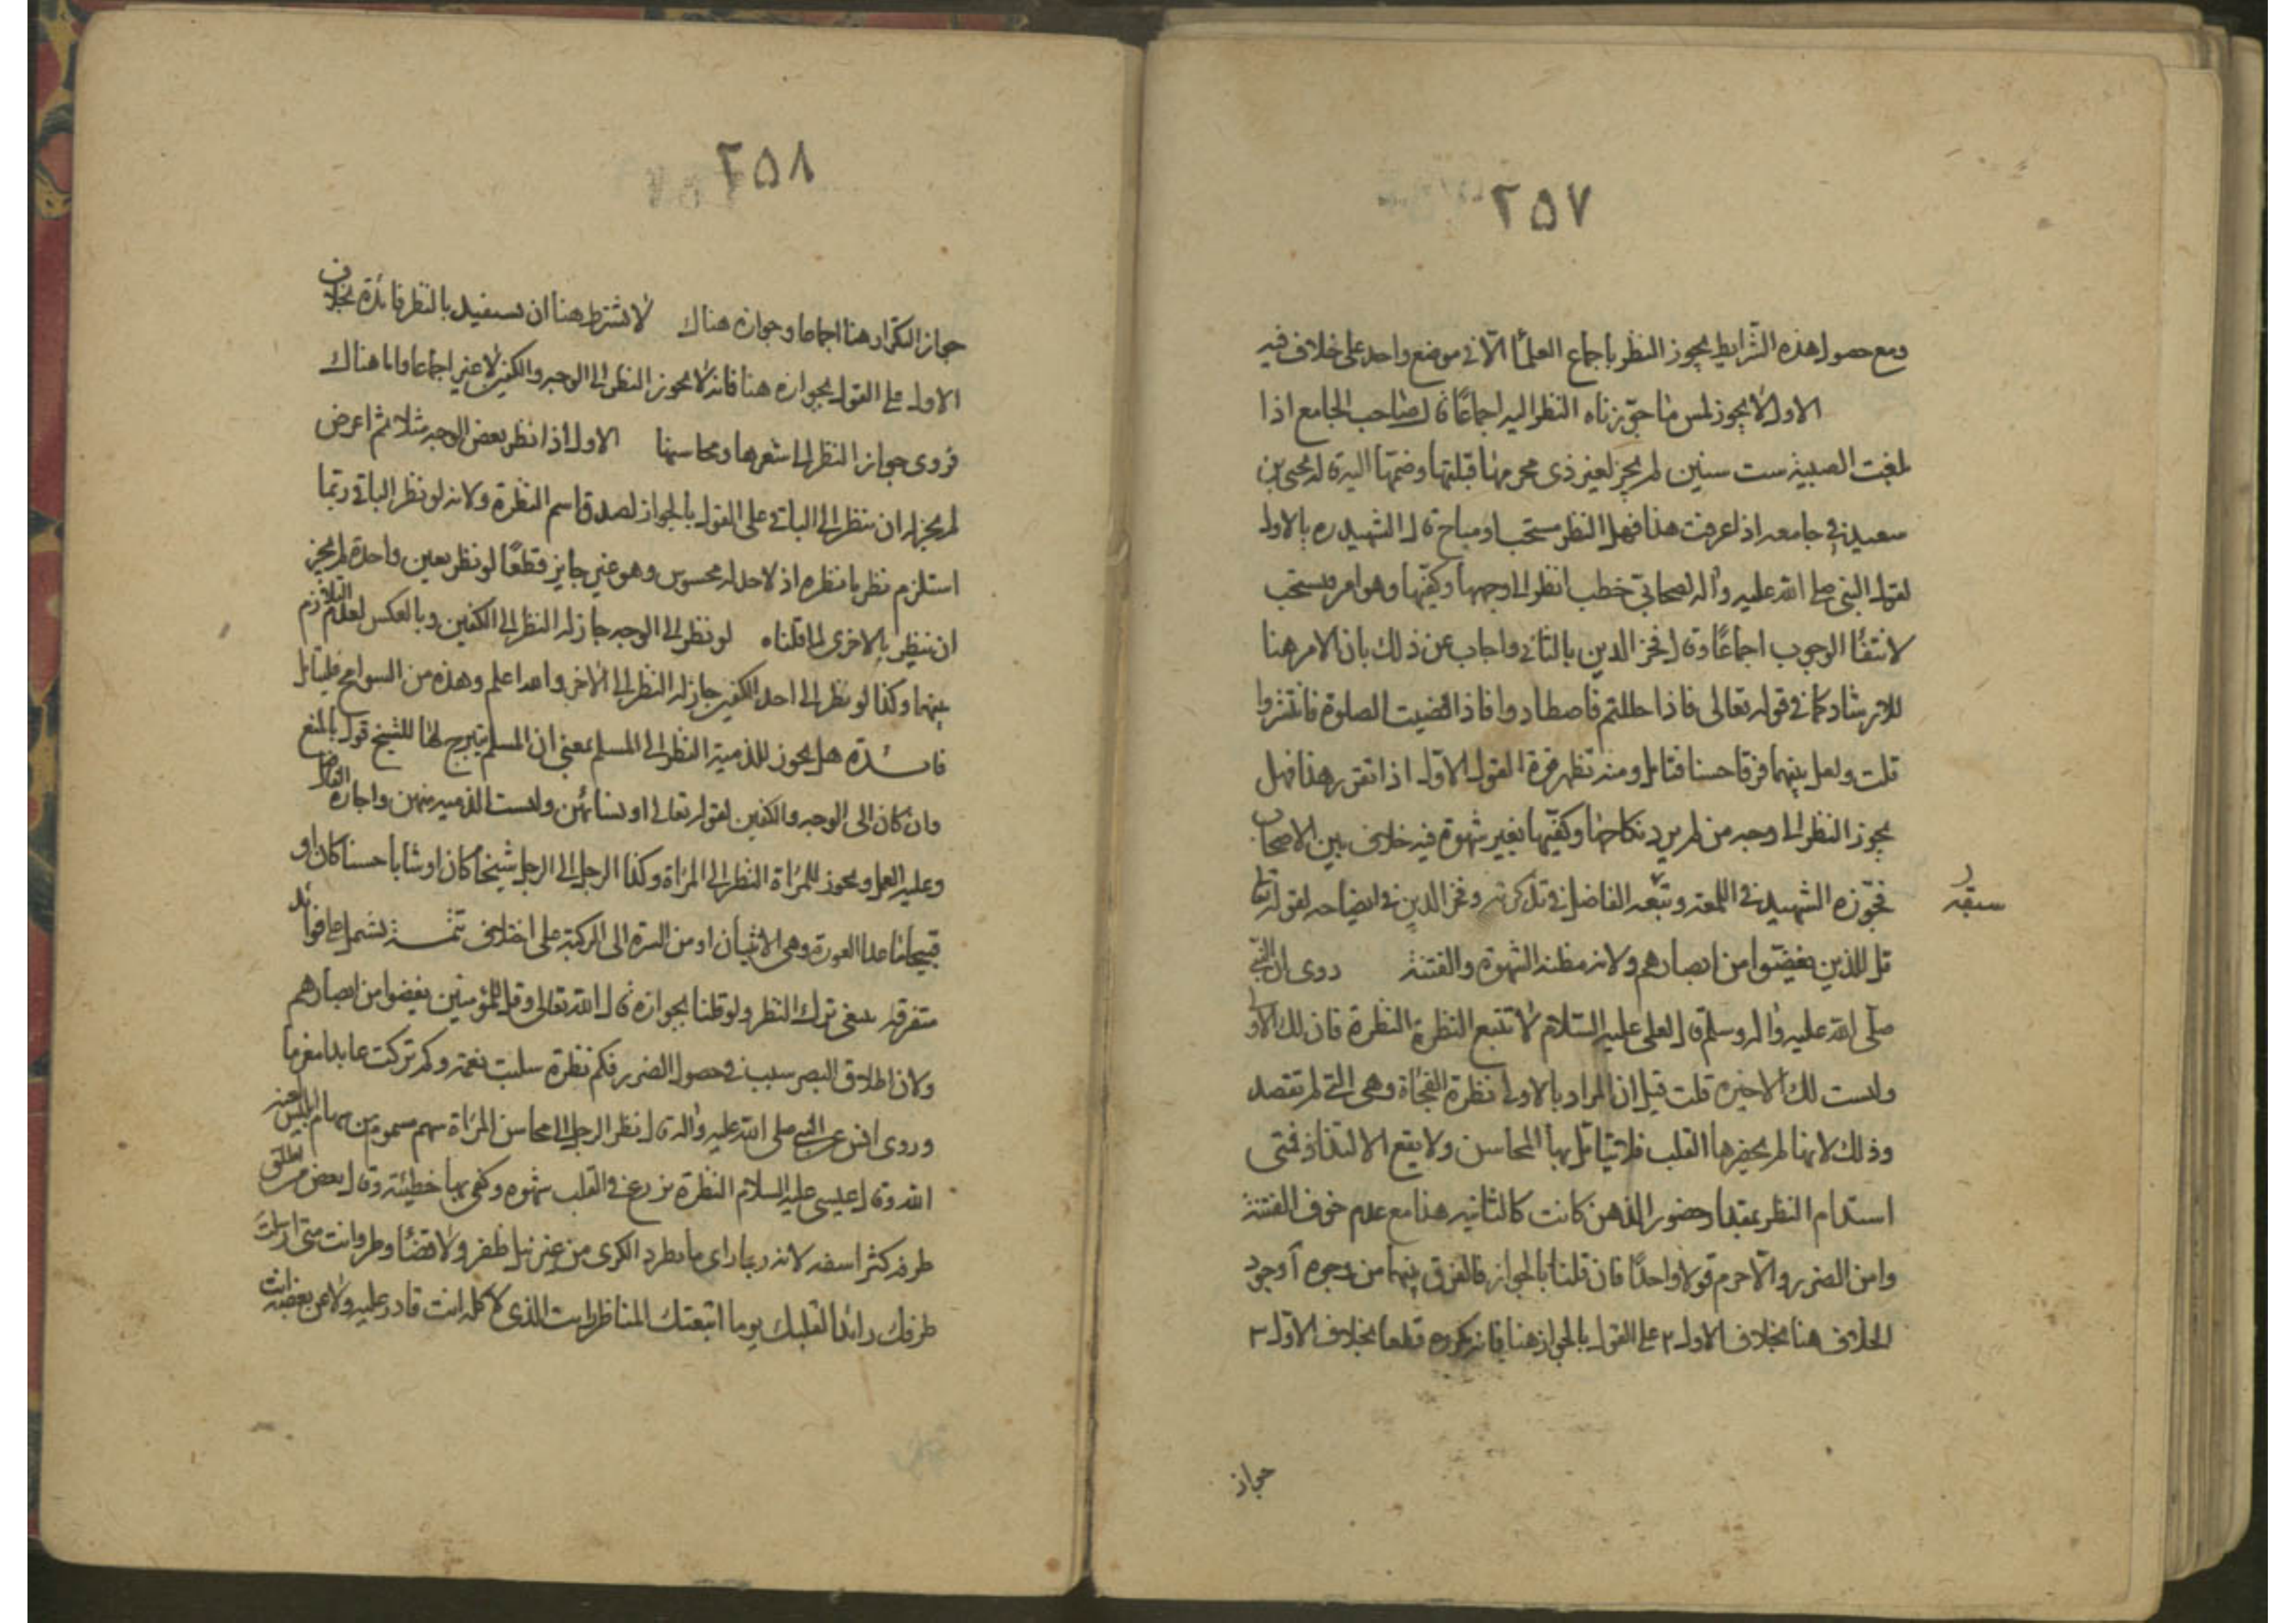 ٢٥٧
ومع حصول هذه الشرايط يجوز النظر باجماع العلمآ الّا في موضع واحد على خلاف فيه
الاول لا يجوز لمس ما جوّزناه النظر اليه اجماعًا قال صاحب الجامع اذا
بلغت الصبية ست سنين لم يجز لغير ذى محرمها قبلتها وضمّها اليه قاله يحيى بن
سعيد في جامعه اذا عرفت هذا فهل النظر مستحب او مباح قال الشهيد ره بالاول
لقول النبي صلى الله عليه وآله لصحابيّ خطب انظر الى وجهها وكفّيها وهو امر فيستحب
لانتفآ الوجوب اجماعًا وقال فخر الدين بالثاني واجاب عن ذلك بان الامر هنا
للارشاد كما في قوله تعالى فاذا حللتم فاصطادوا فاذا قضيت الصلوة فانتشروا
قلت ولعل بينهما فرقا حسنا فتامل ومنه تظهر قوة القول الاول اذا تقرر هذا فهل
يجوز النظر الى وجه من لم يرد نكاحها وكفّيها بغير شهوة فيه خلاف بين الاصحاب
فجوّزه الشهيد في اللمعة وتبعه الفاضل في تذكرته وفخر الدين في ايضاحه لقوله تعا
قل للذين يغضّوا من ابصارهم ولانه مظنة الشهوة والفتنة روى ان النبي
صلى الله عليه واله وسلم قال لعلى عليه السّلام لا تتبع النظرة النظرة فان لك الاولى
وليست لك الاخيرة قلت قيل ان المراد بالاولى نظرة الفجاة وهى التي لم تقصد
وذلك لانها لم يحضرها القلب فلا يتامل بها المحاسن ولا يقع الالتذاذ فمتى
استدام النظر بمقدار حضور الذهن كانت كالثانية هذا مع عدم خوف الفتنة
وامن الضرر والّا حرم قولا واحدًا فان قلنا بالجواز فالفرق بينهما من وجوه آ وجود
الخلاف هنا بخلاف الاول ٢ على القول بالجواز هنا فانه مكروه قطعا بخلاف الاول ٣
جواز
٢٥٨
جواز التكرار هنا اجماعا وجوازه هناك لا يشترط هنا ان يستفيد بالنظر فائدة بخلاف
الاول على القول بجوازه هنا فانه لا يجوز النظر الى الوجه والكفين لا غير اجماعا واما هناك
فروى جواز النظر الى شعرها ومحاسنها الاول اذا نظر بعض الوجه مثلا ثم اعرض
لم يجز له ان ينظر الى الباقي على القول بالجواز لصدق اسم النظرة ولانه لو نظر الباقي ربّما
استلزم نظر ما نظره اذ لا حد له محسوس وهو غير جايز قطعًا لو نظر بعين واحدة لم يجز
ان ينظر بالاخرى لما قلناه لو نظر الى الوجه جاز له النظر الى الكفين وبالعكس لعدم التلازم
بينهما وكذا لو نظر الى احد الكفين جاز له النظر الى الآخر والله اعلم وهذه من السوانح فليتامل
فائدة هل يجوز للذمية النظر الى المسلمة بمعنى ان المسلمة تتبرج لها للشيخ قول بالمنع
وان كان الى الوجه والكفين لقوله تعالى او نسائهن وليست الذمية منهن واجازه الفاضل
وعليه العمل ويجوز للمراة النظر الى المراة وكذا الرجل الى الرجل شيخًا كان او شابا حسنا كان او
قبيحا ما عدا العورة وهى الانثيان او من السرة الى الركبة على اختلاف تتمة تشمل على فوائد
متفرقة ينبغي ترك النظر ولو قلنا بجوازه قال الله تعالى وقل للمؤمنين يغضوا من ابصارهم
ولان اطلاق البصر سبب في حصول الضرر فكم نظرة سلبت نعمة وكم تركت عابدا مغرما
وروى انس عن النبي صلى الله عليه وآله قال نظر الرجل الى محاسن المراة سهم مسموم من سهام ابليس لعنه
الله وقال عيسى عليه السلام النظرة تزرع في القلب شهوة وكفى بها خطيئة وقال بعض من اطلق
طرفه كثر اسفه لانه ربما راى ما يطرد الكرى من غير نيل ظفر ولا قضآ وطر وانت متى ارسلت
طرفك رائدا لقلبك يوما اتبعتك المناظر رايت الذى لا كله انت قادر عليه ولا عن بعضه انت